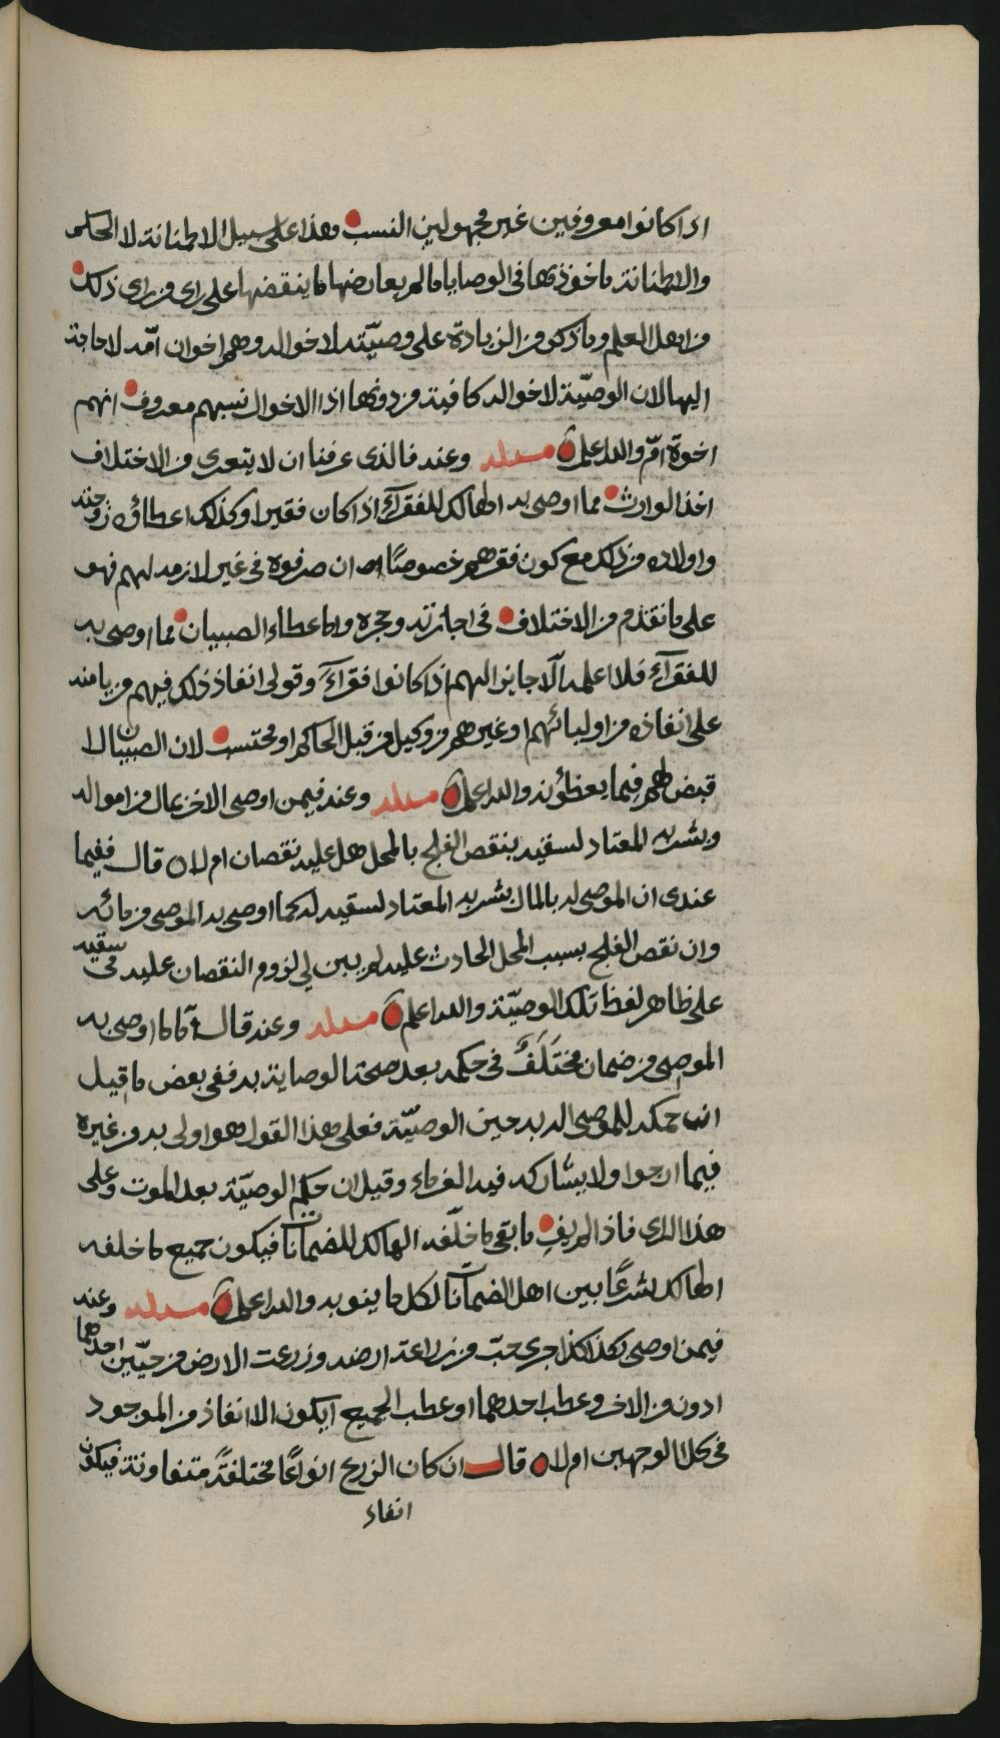 اذا كانوا معروفين غير مجهولين النسب وهذا على سبيل الاطمئانة لا الحكم
والاطمئانة ماخوذ بها في الوصايا مالم يعارضها ما ينقضها على راي من راى ذلك
من اهل العلم وما ذكر من الزيادة على وصيّته لاخواله وهم اخوان امّه لا حاجة
اليها لان الوصيّة لاخواله كافية من دونها اذا الاخوال نسبهم معروف انهم
اخوة امّ والله اعلم مسئله وعنه فالذي عرفنا ان لا يتعرى من الاختلاف
اخذ الوارث مما اوصى به الهالك للفقرآء اذا كان فقيرا وكذلك اعطاؤه زوجته
واولاده من ذلك مع كون فقرهم خصوصًا ان صرفوه في غير لازمه لهم فهو
على ما تقدم من الاختلاف في اجازته وحجره واما عطاء الصبيان مما اوصى به
للفقرآء فلا اعلمه الّا جائز الهم اذا كانوا فقرآء وتولى انفاذ ذلك فيهم من يامنه
على انفاذه من اوليائهم او غيرهم من وكيل من قبل الحاكم او محتسب لان الصبيان لا
قبض لهم فيما يعطونه والله اعلم مسئله وعنه فيمن اوصى لاخر بمال من امواله
وبشربه المعتاد لسقيه بنقص الفلج بالمحل هل عليه نقصان ام لا قال ففيما
عندي ان الموصى له بالمال بشربه المعتاد لسقيه له كما اوصى به الموصي من مائه
وان نقص الفلج بسبب المحل الحادث عليه لم يبين لي لزوم النقصان عليه في سقيه
على ظاهر لفظ تلك الوصيّة والله اعلم مسئله وعنه قال امّا ما اوصى به
الموصي من ضمان مختَلَفٌ في حكمه بعد صحة الوصاية به ففي بعض ما قيل
انه حكمه للموصى اله به حين الوصيّة فعلى هذا القول هو اولى به من غيره
فيما ارجوا ولا يشاركه فيه الغرماء وقيل ان حكم الوصيّة بعد الموت وعلى
هذا الراي فاذا لم يفِ ما بقي ما خلّفه الهالك للضمانات فيكون جميع ما خلفه
الهالك شرعًا بين اهل الضمانات لكل ما ينوبه والله اعلم مسئله وعنه
فيمن اوصى بكذا كذا جرى حبّ من زراعة ارضه وزرعت الارض من حبّين احدهما
ادون من الاخر وعطب احدهما او عطب الجميع ايكون الا انفاذ من الموجود
في كلا الوجهين ام لا قال ان كان الزرع انواعًا مختلفةً متفاوتة فيكون
انفاذ